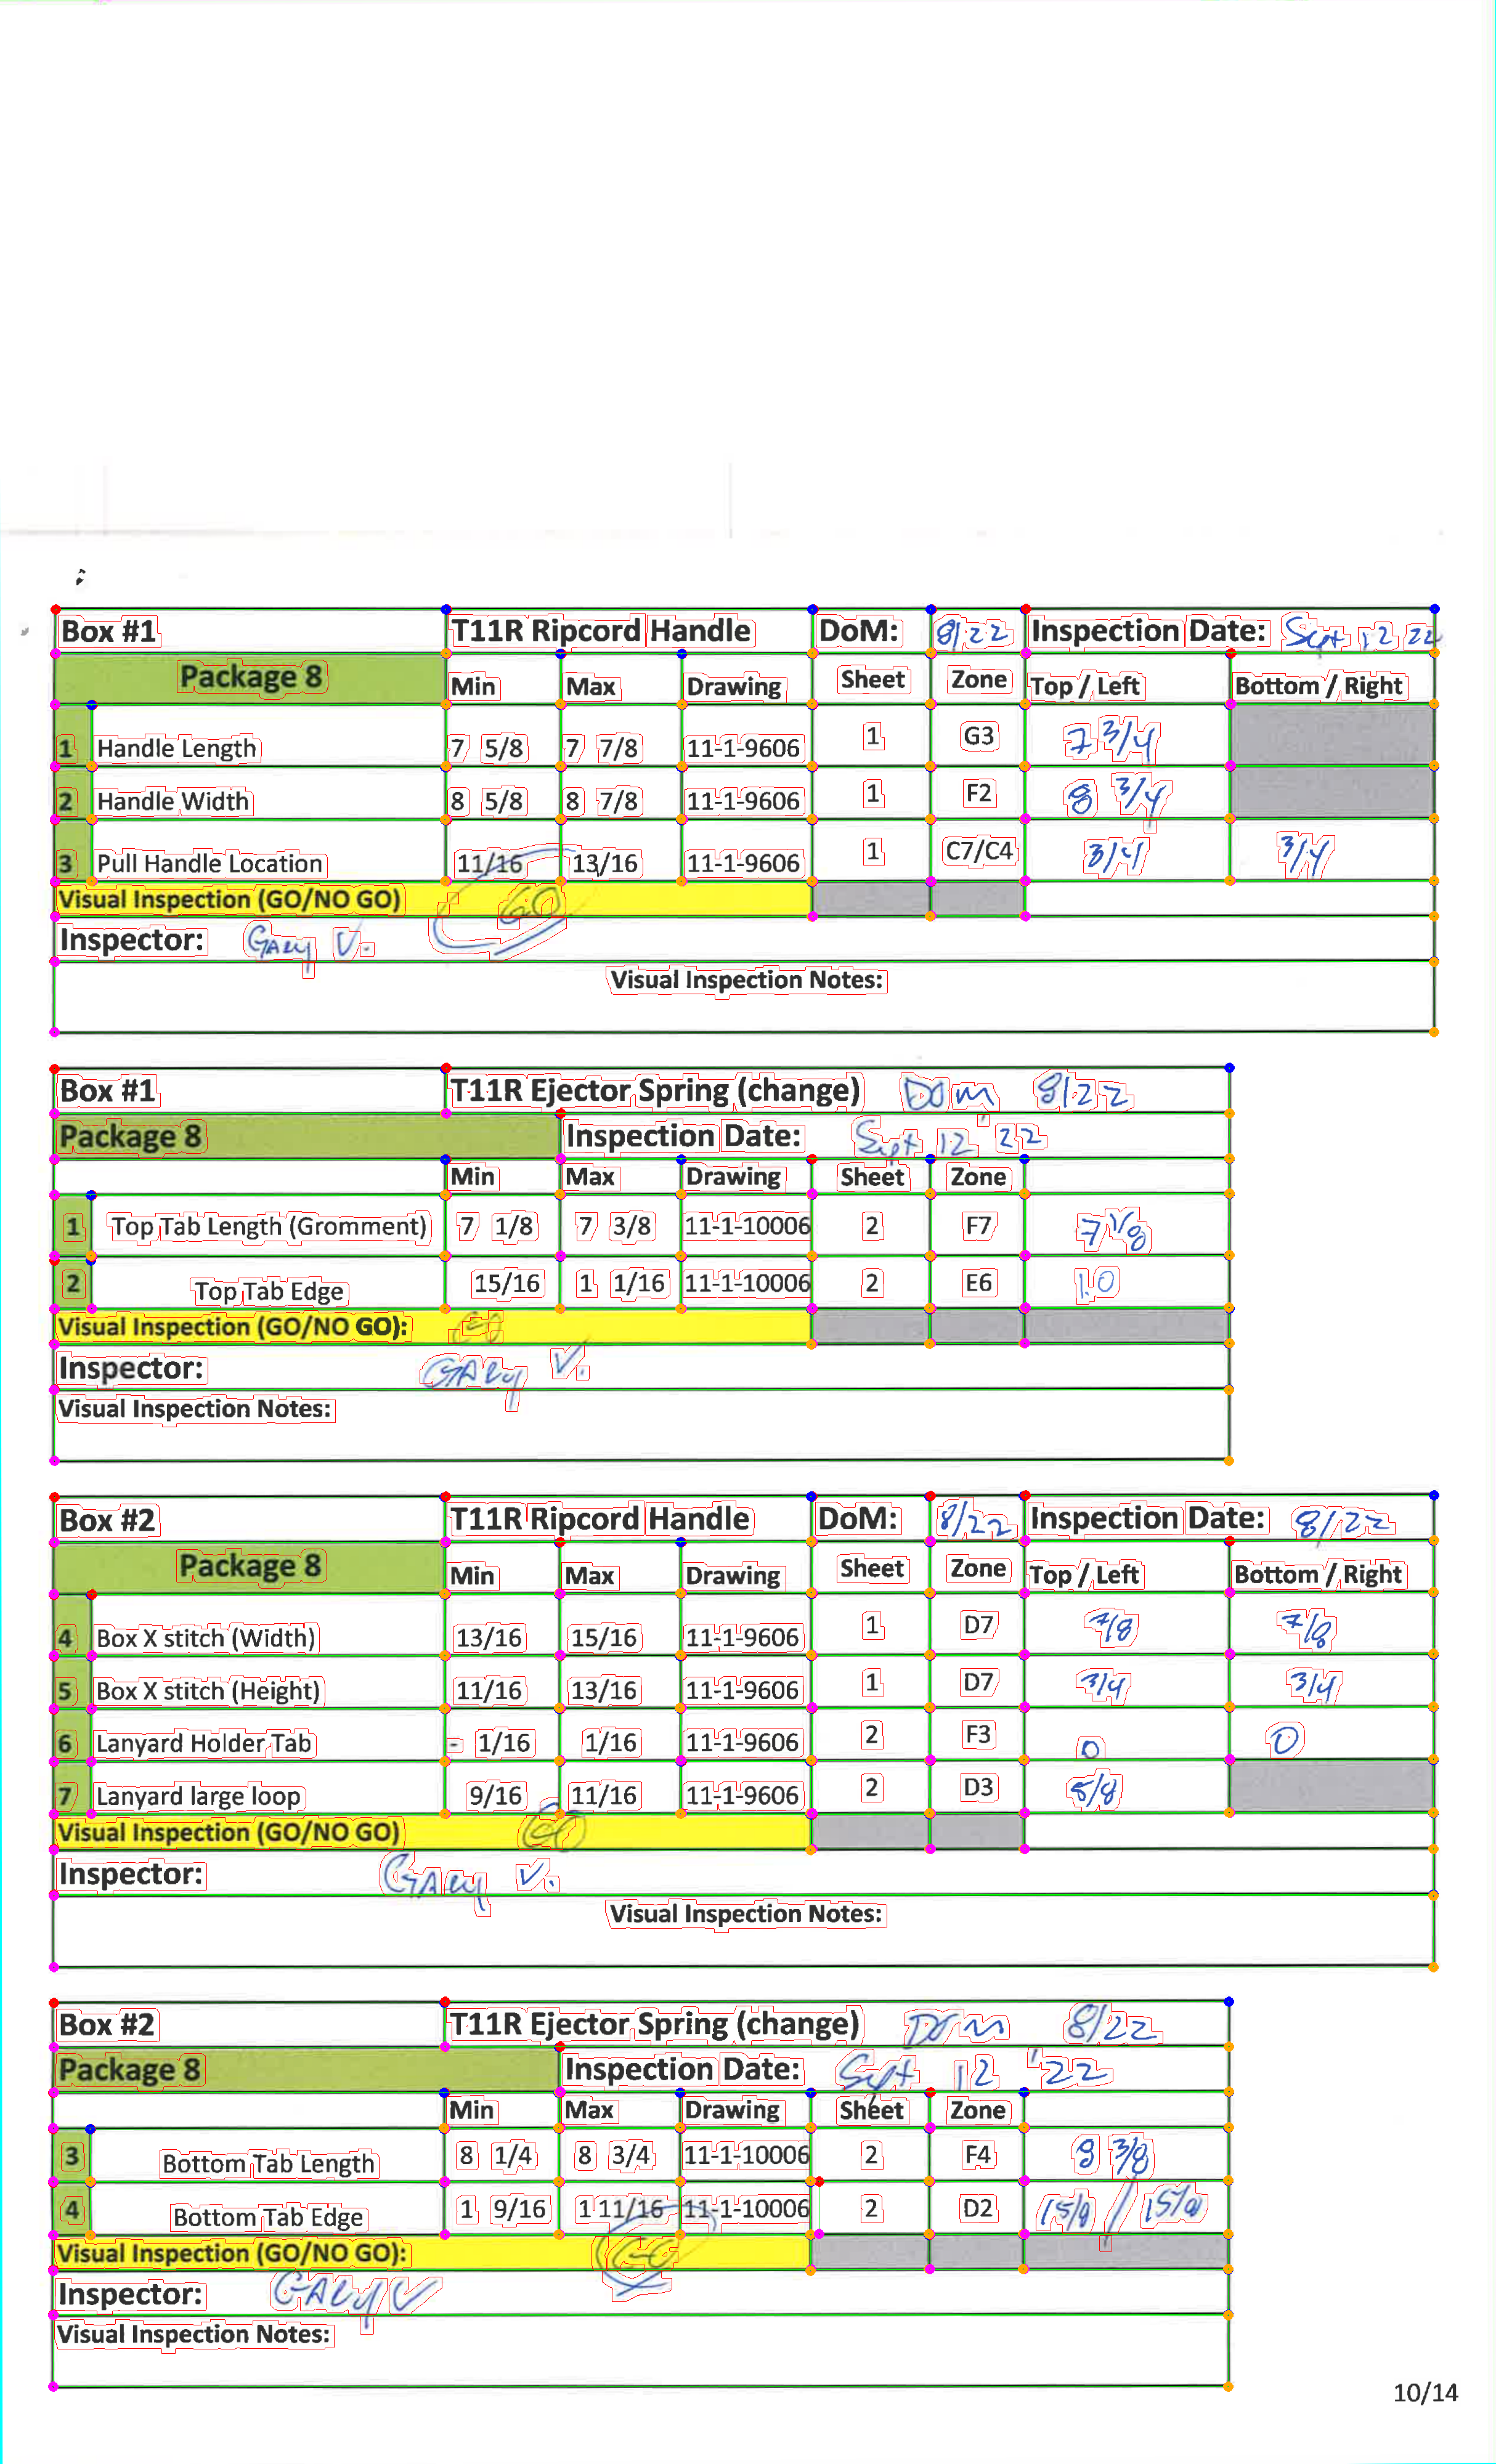 Box #1 T11R Ripcord Handle DoM: 8/22 Inspection Date: Sept 12 22
Package 8 Min Max Drawing Sheet Zone Top / Left Bottom / Right
1 Handle Length 7 5/8 7 7/8 11-1-9606 1 G3 7 3/4
2 Handle Width 8 5/8 8 7/8 11-1-9606 1 F2 8 3/4
3 Pull Handle Location 11/16 13/16 11-1-9606 1 C7/C4 3/4 3/4
Visual Inspection (GO/NO GO) GO
Inspector: GARY V.
Visual Inspection Notes:
Box #1 T11R Ejector Spring (change) DOM 8/22
Package 8 Inspection Date: Sept 12 '22
Min Max Drawing Sheet Zone
1 Top Tab Length (Gromment) 7 1/8 7 3/8 11-1-10006 2 F7 7 1/8
2 Top Tab Edge 15/16 1 1/16 11-1-10006 2 E6 1.0
Visual Inspection (GO/NO GO):
Inspector: GARY V.
Visual Inspection Notes:
Box #2 T11R Ripcord Handle DoM: 8/22 Inspection Date: 8/22
Package 8 Min Max Drawing Sheet Zone Top / Left Bottom / Right
4 Box X stitch (Width) 13/16 15/16 11-1-9606 1 D7 7/8 7/8
5 Box X stitch (Height) 11/16 13/16 11-1-9606 1 D7 3/4 3/4
6 Lanyard Holder Tab - 1/16 1/16 11-1-9606 2 F3 0 0
7 Lanyard large loop 9/16 11/16 11-1-9606 2 D3 5/8
Visual Inspection (GO/NO GO) GO
Inspector: GARY V.
Visual Inspection Notes:
Box #2 T11R Ejector Spring (change) DOM 8/22
Package 8 Inspection Date: Sept 12 '22
Min Max Drawing Sheet Zone
3 Bottom Tab Length 8 1/4 8 3/4 11-1-10006 2 F4 8 3/8
4 Bottom Tab Edge 1 9/16 1 11/16 11-1-10006 2 D2
Visual Inspection (GO/NO GO): GO
Inspector: GARY V
Visual Inspection Notes:
10/14